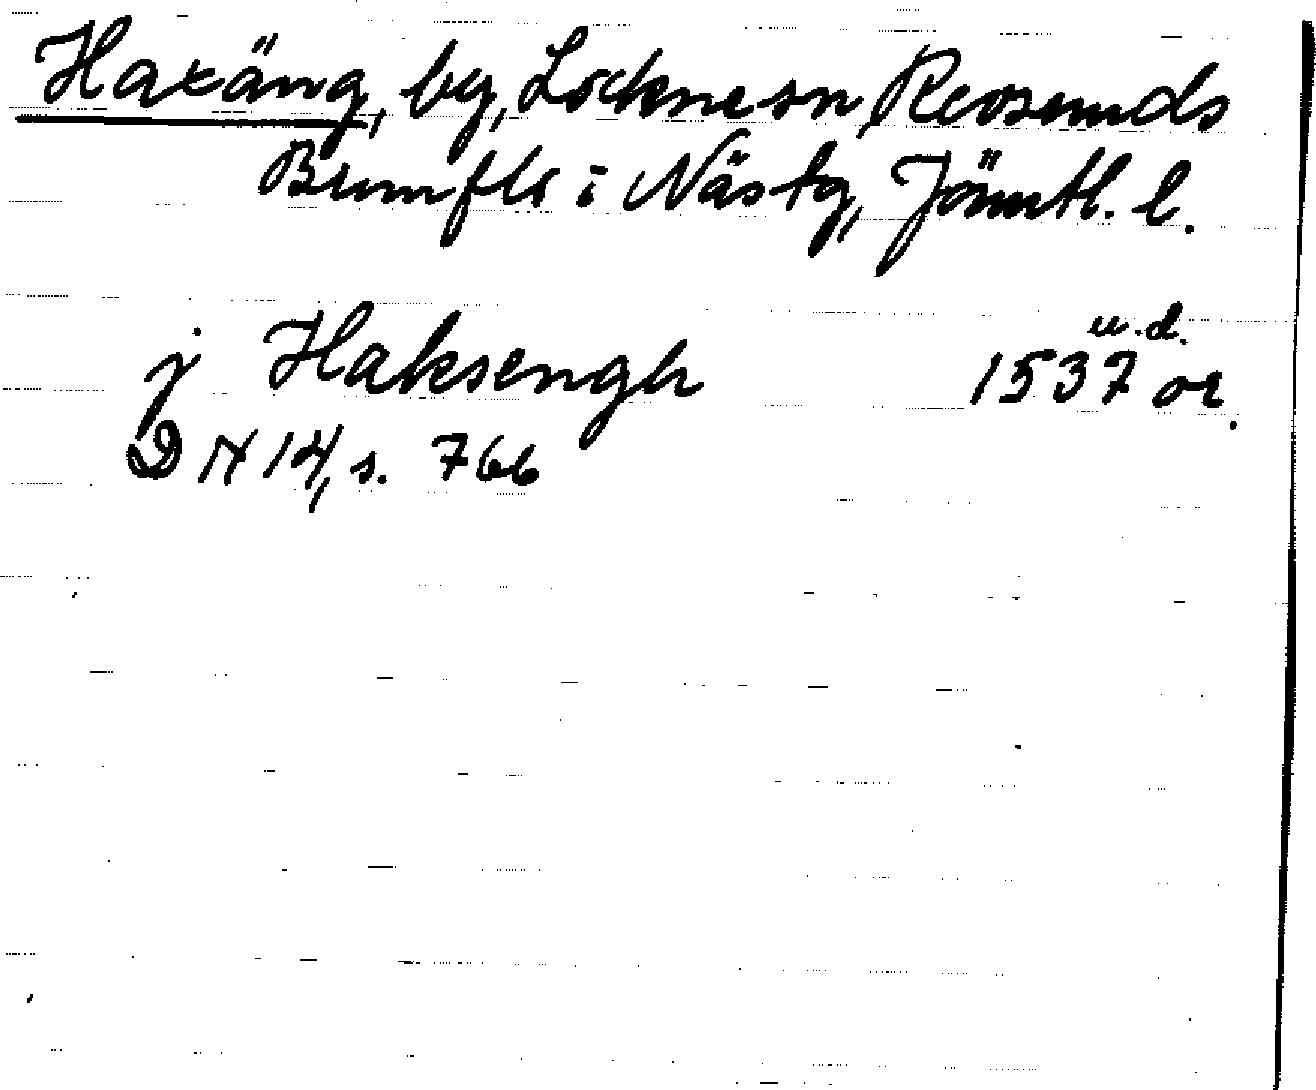 Haxäng, by, Lockne sn, Revsunds
Brunflo i Nästg, Jämtl. l.
j Haksengh 1537 u.d. or.
DN 14, s. 766